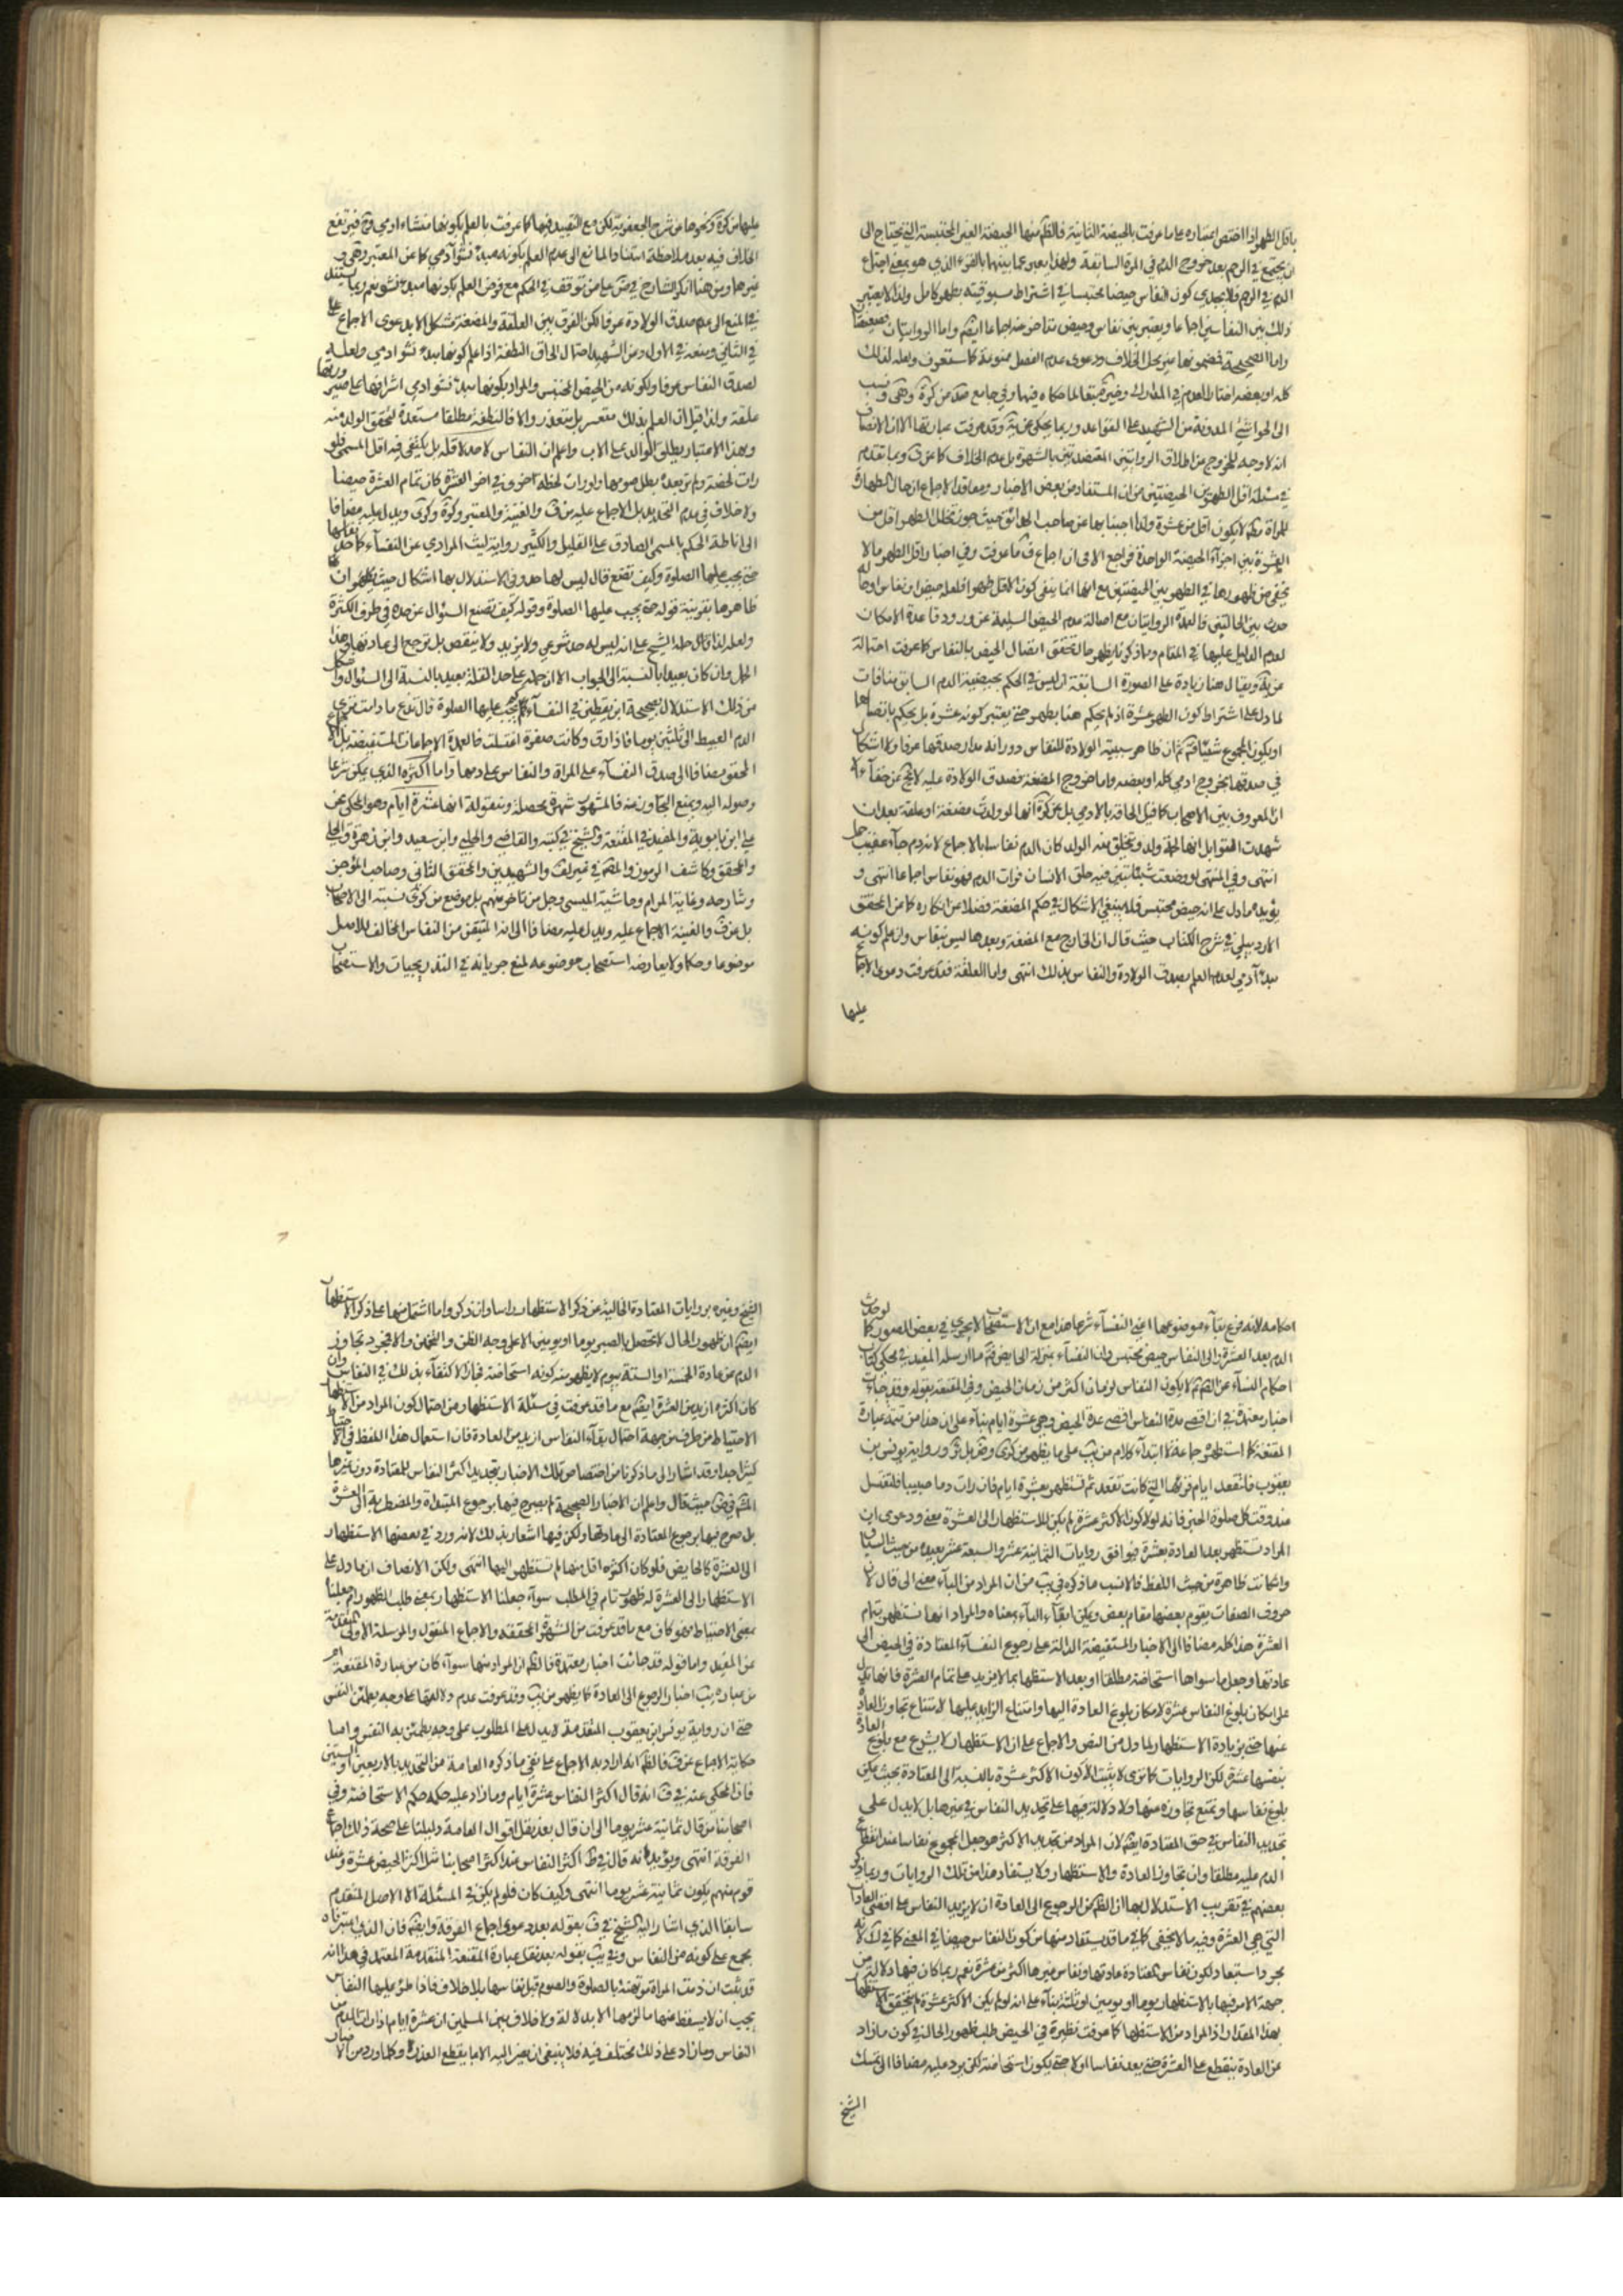 باقل الطهر اذا اختص اعتباره على ما عرفت بالحيضة الثانية فالظم منها الحيضة الغير المحتبسة التي يحتاج الى
ان يجتمع في الرحم بعد خروج الدم في المرة السابقة ولهذا يعبر عما بينهما بالقرء الذي هو بمعنى اجتماع
الدم في الرحم فلا يجدي كون النفاس حيضا محتبسا في اشتراط مسبوقيته بطهر كامل ولذا لا يعتبر
ذلك بين النفاسين اجماعا ويعتبر بين نفاس وحيض متاخر عنه اجماعا ايضا واما الروايتان فضعيفتا
واما الصحيحة فمضمونها غير محل الخلاف ودعوى عدم الفصل ممنوعة كما ستعرف ولعله لذلك
كله او بعضه اختار العدم في المدارك
الى الحواشي المدونة من الشهيد على القواعد وربما يحكى عن وقد عرفت عبارتها الا ان الانصاف
انه لا وجه للخروج من اطلاق الروايتين المعتضدتين بالشهرة بل عدم الخلاف كما عن وبما تقدم
في مسئلة اقل الطهر بين الحيضتين من ان المستفاد من بعض الاخبار ومعاقد الاجماع ان حال الطهارة
للمراة لا يكون اقل من عشرة ولذا اجبنا بها عن صاحب الحدائق حيث جوز تخلل الطهر اقل من
العشرة بين اجزاء الحيضة الواحدة فراجع الا في ان اجماع ف ما عرفت وفي اخبار اقل الطهر ما لا
يخفى من ظهورها في الطهر بين الحيضتين مع انها انما ينفى كون الاقل طهرا فلعله حيض او نفاس او حا
حدث بين الحالتين فالعمدة الروايتان مع اصالة عدم الحيض السليمة عن ورود قاعدة الامكان
لعدم الدليل عليها في المقام ومما ذكرنا يظهر حال تحقق اتصال الحيض بالنفاس كما عرفت احتماله
ويقال هنا زيادة على الصورة السابقة انه ليس في الحكم بحيضية الدم السابق منافات
لما دل على اشتراط كون الطهر عشرة اذ لم يحكم هنا بطهر حتى يعتبر كونه عشرة بل يحكم باتصالهما
او يكون المجموع شيئا ثم ان ظاهر سببية الولادة للنفاس دورانه مدار صدقها عرفا ولا اشكال
في صدقها بخروج ادمي كله او بعضه واما خروج المضغة فصدق الولادة عليه لا يخ عن خفاء الا
ان المعروف بين الاصحاب كما قيل الحاقه بالادمي بل عن كرة انها لو ولدت مضغة او علقة بعد ان
شهدت القوابل انها لحمة ولد ويتخلق منه الولد كان الدم نفاسا بالاجماع لانه دم جاء عقيب حمل
انتهى وفي المنتهى لو وضعت شيئا تبين فيه خلق الانسان فرات الدم فهو نفاس اجماعا انتهى و
يؤيده ما دل على انه حيض محتبس فلم ينبغي الاشكال في حكم المضغة فضلا عن انكاره كما من المحقق
الاردبيلي في شرح الكتاب حيث قال ان الخارج مع المضغة وبعدها ليس بنفاس وان علم كونه
مبدأ آدمي لعدم العلم بصدق الولادة والنفاس بذلك انتهى واما العلقة فقد عرفت دعوى الاجماع
عليها
عليها من كرة ونحوها من شرح الجعفرية لكن مع التقييد فيها كما عرفت بالعلم بكونها منشاء ادمي فيرتفع
الخلاف فيه بعد ملاحظة استناد المانع الى عدم العلم بكونه مبدأ نشو آدمي كما عن المعتبر وهى و
غيرها ومن هنا انكر الشارح في ض على من توقف في الحكم مع فرض العلم بكونها مبدء نشو نعم ربما يستند
في المنع الى عدم صدق الولادة عرفا لكن الفرق بين العلقة والمضغة مشكل الا بدعوى الاجماع على
في الثاني ومنعه في الاول ومن الشهيد احتمال الحاق النطفة اذا علم كونها مبدأ نشو ادمي ولعله
لصدق النفاس عرفا ولكونه من الحيض المحتبس والمراد بكونها مبدأ نشو ادمي اشرافها على صيرورتها
علقة ولذا قيل ان العلم بذلك متعسر بل متعذر والا فالنطفة مطلقا مستعدة لتحقق الولد منه
وبهذا الاعتبار يطلق الوالد على الاب واعلم ان النفاس لا حد لاقله بل يكتفى فيه اقل المسمى فلو
رات لحظة ولم تر بعده بطل صومها ولو رات لحظة اخرى في اخر العشرة كان تمام العشرة حيضا
ولا خلاف في عدم التحديد بل الاجماع عليه عن ف والغنية والمعتبر وكرة وكرى ويدل عليه مضافا
الى اناطة الحكم بالمسمى الصادق على القليل والكثير رواية ليث المرادي عن النفساء كم حد نفاسها
حتى يجب عليها الصلوة وكيف تصنع قال ليس لها حد وفي الاستدلال بها اشكال حيث يظهر ان
ظاهرها بقرينة قوله حتى يجب عليها الصلوة وقوله كيف تصنع السؤال عن حده في طرف الكثرة
ولعله لذا قال حمله الشيخ على انه ليس له حد شرعي ولا يزيد ولا ينقص بل ترجع الى عادتها وهذا
الحمل وان كان بعيدا بالنسبة الى الجواب الا ان حمله على حد القلة بعيد بالنسبة الى السئوال واشكل
من ذلك الاستدلال بصحيحة ابن يقطين في النفساء كم يجب عليها الصلوة قال تدع ما دامت ترى
الدم العبيط الى ثلثين يوما فاذا رق وكانت صفرة اغتسلت فالعمدة الاجماعات المستفيضة بل الاجماع
المحقق مضافا الى صدق النفساء على المراة والنفاس على دمها واما اكثره الذي يمكن شرعا
وصوله اليه ويمنع التجاوز عنه فالمشهور شهرة محصلة ومنقولة انها عشرة ايام وهو المحكى عن
علي ابن بابويه والمفيد في المقنعة والشيخ في كتبه والقاضي والحلبي وابن سعيد وابن زهرة والحلي
والمحقق وكاشف الرموز والعلامة في غير لف والشهيدين والمحقق الثاني وصاحب الموجز
وشارحه وغاية المرام وحاشية الميسي وجل من تاخر عنهم بل موضع من كرى نسبته الى الاصحاب
بل عن ف والغنية الاجماع عليه ويدل عليه مضافا الى انه المتيقن من النفاس المخالف للاصل
موضوعا وحكما ولا يعارضه استصحاب موضوعه لمنع جريانه في التدريجيات والاستصحاب
احكامه لانه فرع بقاء موضوعها اعني النفساء شرعا هذا مع ان الاستصحاب لا يجري في بعض الصور كما لو حدث
الدم بعد العشرة والى النفاس حيض محتبس وان النفساء بمنزلة الحايض ما ارسله المفيد في محكي كتاب
احكام النساء عن الصم لا يكون النفاس لزمان اكثر من زمان الحيض وفي المقنعة بقوله وقد جاءت
اخبار معتمدة في ان اقصى مدة النفاس اقصى عدة الحيض وهي عشرة ايام بناء على ان هذا من تتمة عبارة
المقنعة كما استظهره جماعة لا ابتداء كلام من يب على ما يظهر من كرى ورواية يونس بن
يعقوب فلتقعد ايام قرئها التي كانت تقعد ثم تستظهر بعشرة ايام فان رات دما صبيبا فلتغتسل
عند وقت كل صلوة الخبر فانه لولا كون الاكثر عشرة لم يكن للاستظهار الى العشرة معنى ودعوى ان
المراد تستظهر بعد العادة بعشرة فيوافق روايات الثمانية عشر والسبعة عشر بعيدة من حيث السياق
وان كانت ظاهرة من حيث اللفظ فالانسب ما ذكره في يب من ان المراد من الباء معنى الى قال لان
حروف الصفات يقوم بعضها مقام بعض ويمكن ابقاء الباء بمعناه والمراد انها تستظهر بتمام
العشرة هذا كله مضافا الى الاخبار المستفيضة الدالة على رجوع النفساء المعتادة في الحيض الى
عادتها وجعل ما سواها استحاضة مطلقا او بعد الاستظهار بما لا يزيد على تمام العشرة فانها تدل
على امكان بلوغ النفاس عشرة لامكان بلوغ العادة اليها وامتناع الزايد عليها لامتناع تجاوز العادة
عنها حتى بزيادة الاستظهار لما دل من النص والاجماع على ان الاستظهار لا يشرع مع بلوغ العادة
بنفسها عشرة لكن الروايات كما ترى لا يثبت الا كون الاكثر عشرة بالنسبة الى المعتادة بحيث يمكن
بلوغ نفاسها ويمتنع تجاوزه عنها ولا دلالة فيها على تحديد النفاس في غيرها بل لا يدل على
تحديد النفاس في حق المعتادة ايضا لان المراد من تحديد الاكثر هو جعل المجموع نفاسا عند انقطاع
الدم عليه مطلقا وان تجاوز العادة والاستظهار ولا يستفاد هذا من تلك الروايات وربما ذكر
بعضهم في تقريب الاستدلال بها ان الظم من الرجوع الى العادة ان لا يزيد النفاس على اقصى العادات
التي هي العشرة وفيه ما لا يخفى كما في ما قد يستفاد منها من كون النفاس حيضا في المعنى كما في ك لانه
مجرد استبعاد لكون نفاس المعتادة عادتها ونفاس غيرها اكثر من عشرة نعم ربما كان فيها دلالة من
جهة الامر فيها بالاستظهار يوما او يومين او ثلثة بناء على انه لو لم يكن الاكثر عشرة لم يتحقق الاستظهار
بهذا المقدار اذ المراد من الاستظهار كما عرفت نظيره في الحيض طلب ظهور الحال في كون ما زاد
عن العادة ينقطع على العشرة حتى يعد نفاسا او لا حتى يكون استحاضة لكن يرد عليه مضافا الى تمسك
الشيخ
الشيخ وغيره بروايات المعتادة الخالية عن ذكر الاستظهار راسا وان ذكر واما اشتمل منها على ذكر الاستظهار
ايضا ان ظهور الحال لا يحصل بالصبر يوما او يومين الا على وجه الظن والتخمين والا فمجرد تجاوز
الدم عن عادة الخمسة او الستة بيوم لا يظهر منه كونه استحاضة فجاز الاكتفاء بذلك في النفاس وان
كان اكثره ازيد من العشرة ايضا مع ما قد عرفت في مسئلة الاستظهار من احتمال كون المراد من الاستظهار
الاحتياط من طرف من جهة احتمال بقاء النفاس ازيد من العادة فان استعمال هذا اللفظ في الاحتياط
كثير جدا وقد اشار الى ما ذكرنا من اختصاص تلك الاخبار بتحديد اكثر النفاس للمعتادة دون غيرها
حيث قال واعلم ان الاخبار الصحيحة لم يصرح فيها برجوع المبتدأة والمضطربة الى العشرة
بل صرح فيها برجوع المعتادة الى عادتها ولكن فيها اشعار بذلك لانه ورد في بعضها الاستظهار
الى العشرة كالحايض فلو كان اكثره اقل منها لم تستظهر اليها انتهى ولكن الانصاف ان ما دل على
الاستظهار الى العشرة له ظهور تام في المطلب سواء جعلنا الاستظهار بمعنى طلب الظهور ام جعلنا
بمعنى الاحتياط هو كاف مع ما قد عرفت من الشهرة المحققة والاجماع المنقول والمرسلة الاولى المتقدمة
عن المفيد واما قوله قد جائت اخبار معتمدة فالظم ان المراد منها سواء كان من عبارة المقنعة ام
من عبارة يب اخبار الرجوع الى العادة كما يظهر من يب وقد عرفت عدم دلالتها على وجه يطمئن النفس
حتى ان رواية يونس ابن يعقوب المتقدمة لا يدل على المطلوب على وجه يطمئن به النفس واما
حكاية الاجماع عن ف فالظم انه اراد به الاجماع على نفي ما ذكره العامة من التحديد بالاربعين او الستين
فان المحكى عنه في ف انه قال اكثر النفاس عشرة ايام وما زاد عليه حكمه حكم الاستحاضة وفي
اصحابنا من قال ثمانية عشر يوما الى ان قال بعد نقل اقوال العامة دليلنا على صحة ذلك اجماع
الفرقة انتهى ويؤيده انه قال في ط اكثر النفاس عند اكثر اصحابنا مثل اكثر الحيض عشرة وعند
قوم منهم يكون ثمانية عشر يوما انتهى وكيف كان فلو لم يكن في المسئلة الا الاصل المتقدم
سابقا الذي اشار اليه الشيخ في ف بقوله بعد دعوى اجماع الفرقة وايضا فان الذي اعتبرناه
مجمع على كونه من النفاس وفي يب بقوله بعد نقل عبارة المقنعة المتقدمة المعتمد في هذا انه
قد ثبت ان ذمة المراة مرتهنة بالصلوة والصوم قبل نفاسها بلا خلاف فاذا طرء عليها النفاس
يجب ان لا يسقط عنها ما لزمها الا بدلالة ولا خلاف بين المسلمين ان عشرة ايام اذا رات الدم من
النفاس وما زاد على ذلك مختلف فيه فلا ينبغي ان يصير اليه الا بما يقطع العذر وكلما ورد من الاخبار